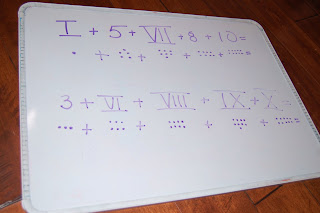 I + 5 + VII + 8 + 10 =
+ + + +
3 + VI + VIII + IX + X =
+ + + +